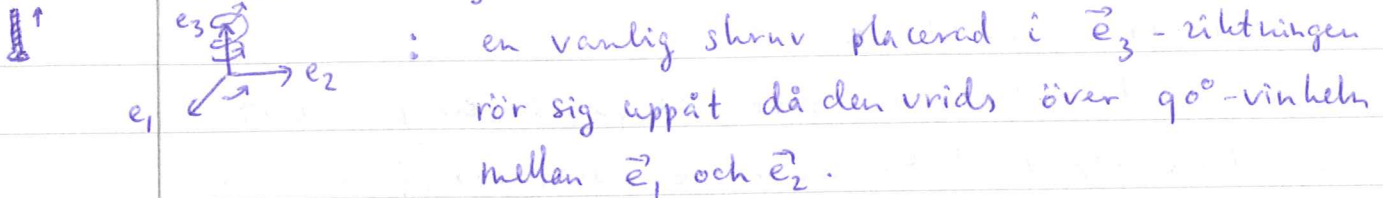 e₃ : en vanlig skruv placerad i e⃗₃ - riktningen
e₂
e₁ rör sig uppåt då den vrids över 90°-vinkeln
mellan e⃗₁ och e⃗₂.